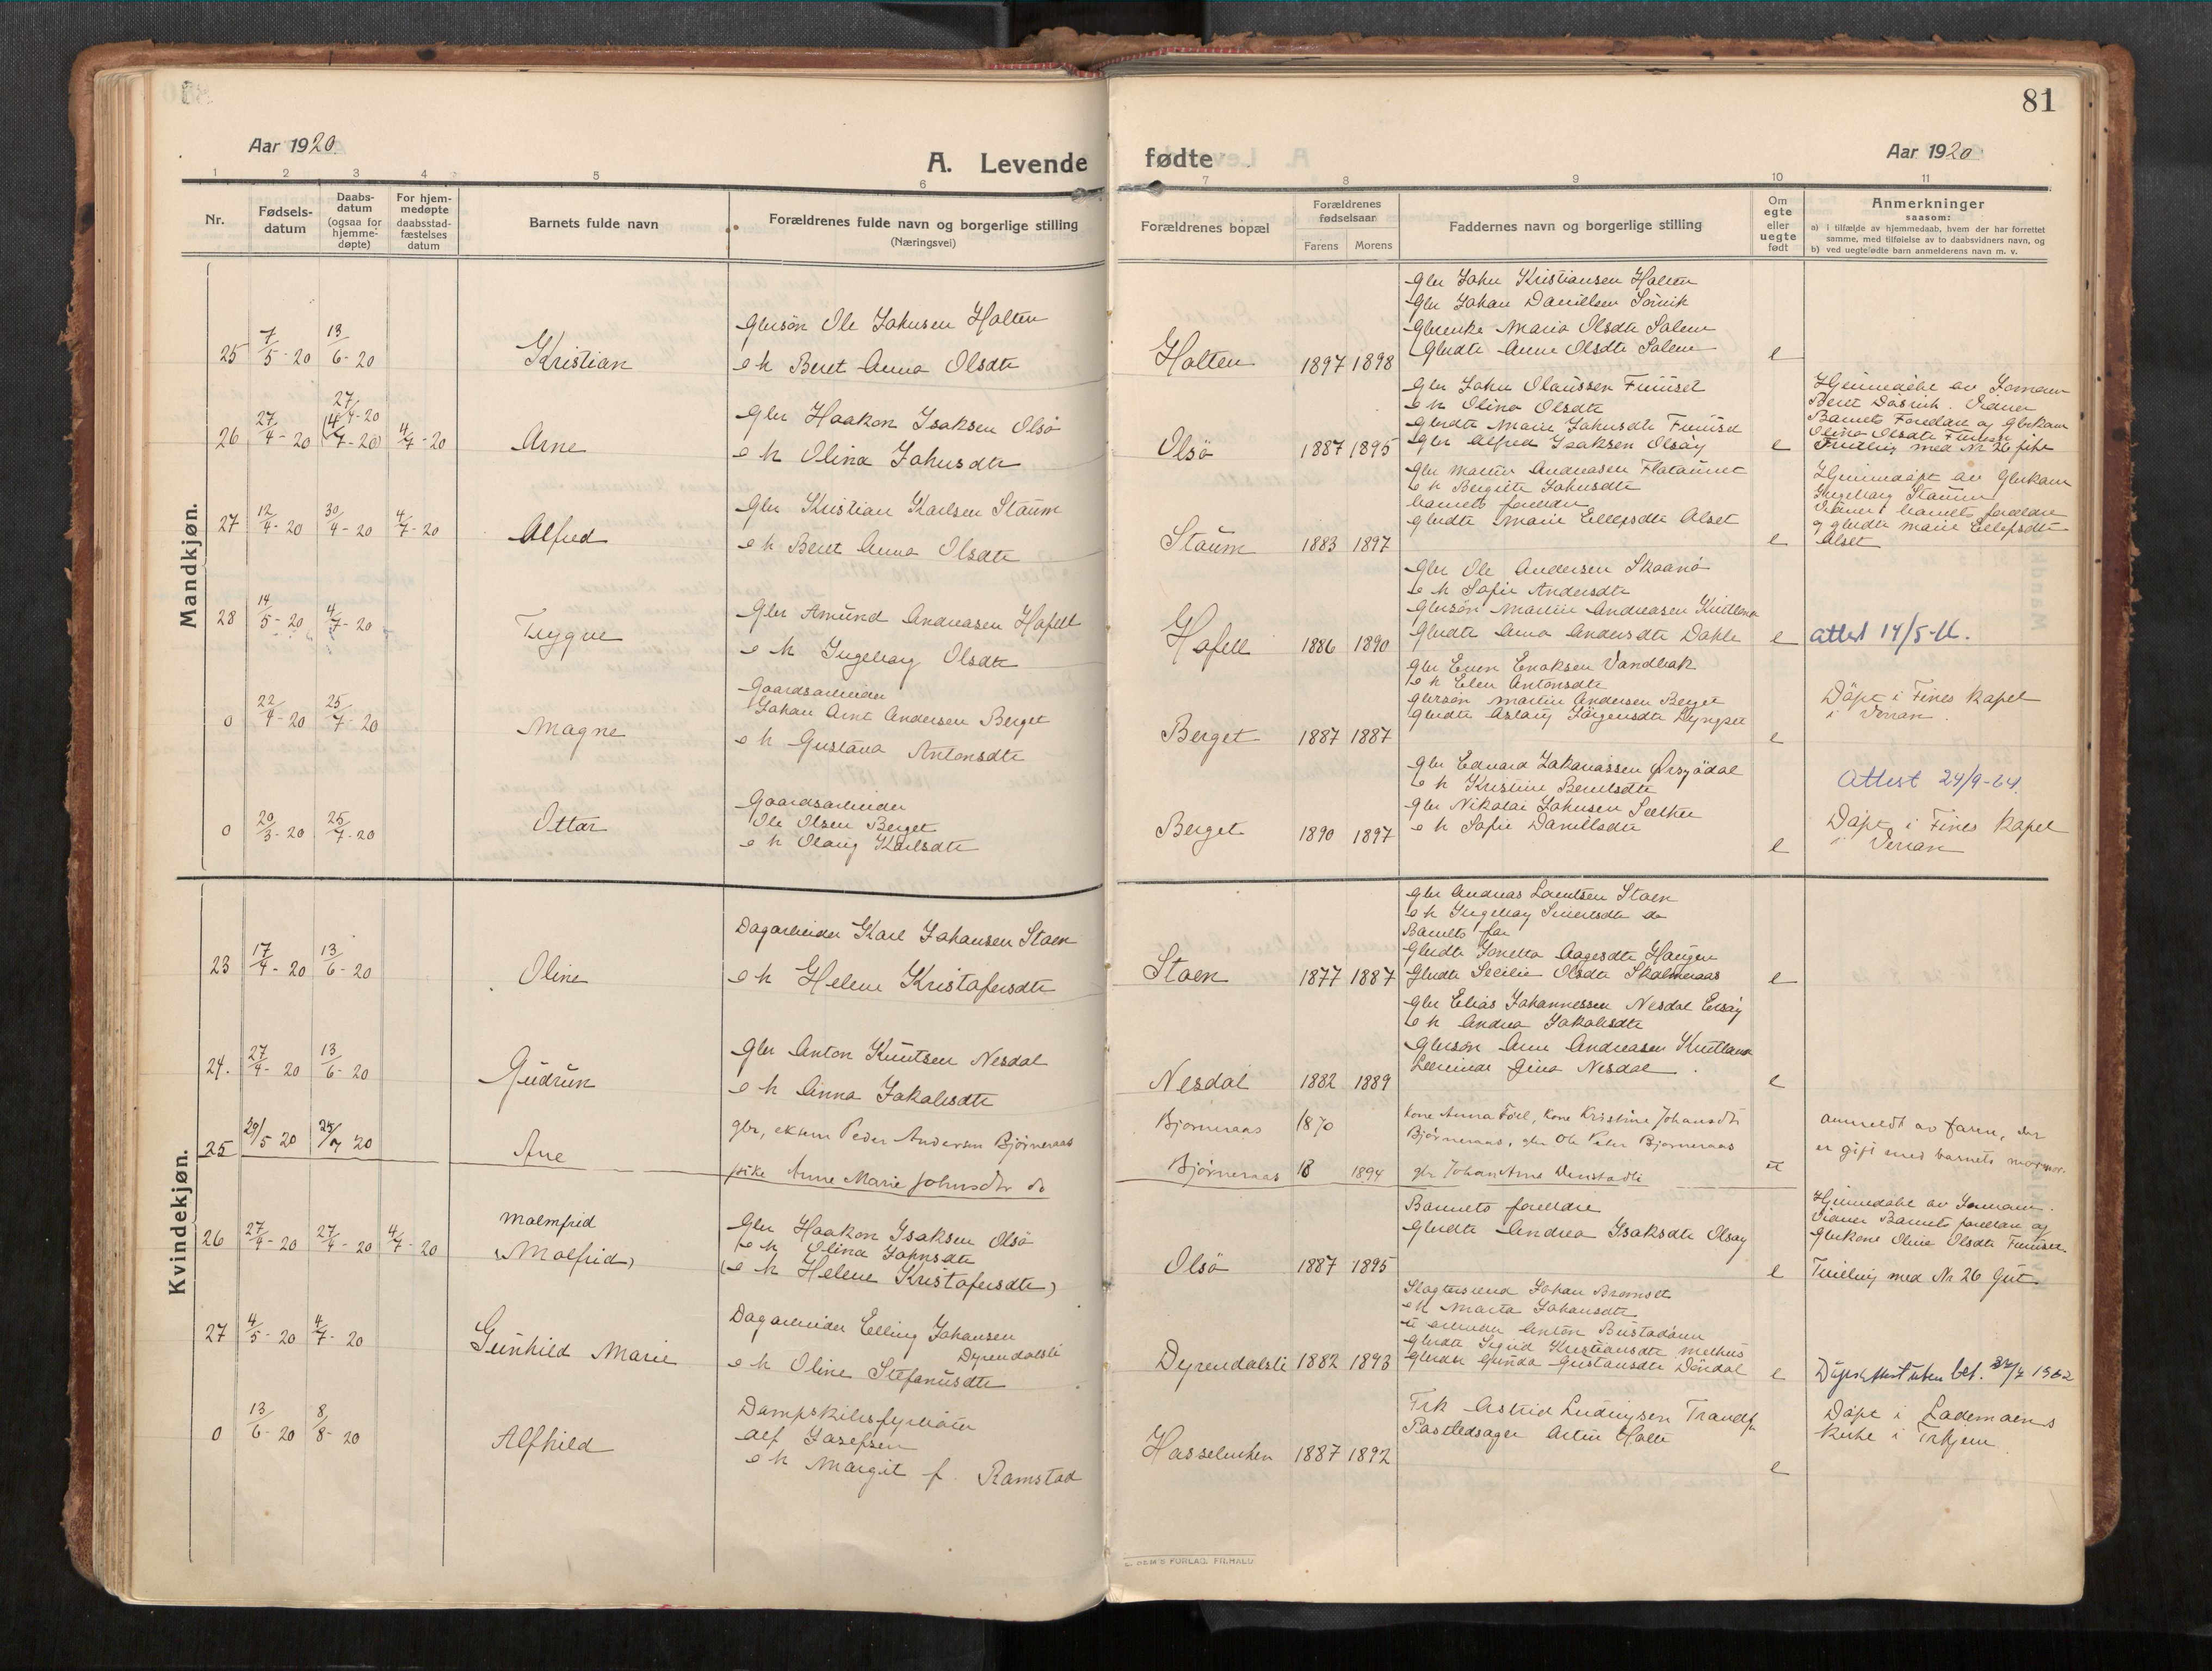 81
Aar 1920
A. Levende
fødte
Aar 1920
1 2 3 4 5 6
7 8 9 10 11
Nr.
Fødsels-
datum
Daabs-
datum
(ogsaa for
hjemme-
døpte)
For hjem-
medøpte
daabsstad-
fæstelses
datum
Barnets fulde navn
Forældrenes fulde navn og borgerlige stilling
(Næringsvei)
Forældrenes bopæl
Forældrenes
fødselsaar
Farens Morens
Faddernes navn og borgerlige stilling
Om
egte
eller
uegte
født
Anmerkninger
saasom:
a) i tilfælde av hjemmedaab, hvem der har forrettet
samme, med tilføielse av to daabsvidners navn, og
b) ved uegtefødte barn anmelderens navn m. v.
Mandkjøn.
25 7/5-20 13/6-20 Kristian
Gbrsøn Ole Johnsen Holten
e h Beret Anna Olsdtr
Holten 1897 1898
Gbr John Kristiansen Holten
Gbr Johan Daniellsen Sørvik
Gbrenke Maria Olsdtr Salen
Gbrdtr Anne Olsdtr Salen
e
26 27/4-20 27/4-20 (4/7-20) 4/7-20 Arne
Gbr Haakon Isaksen Olsø
e h Olina Johnsdtr
Olsø 1887 1895
Gbr John Olaussen Furuset
e h Olina Olsdtr
Gbrdtr Marie Johnsdtr Furuset
Gbr Alfred Isaksen Olsøy
e
Hjemmedøbt av Jormor
Beret Døsvik. Vidner
Barnets Foreldre og Gbrkone
Olina Olsdtr Furuset
Tvilling med Nr 26 pike
27 12/4-20 30/4-20 4/7-20 Alfred
Gbr Kristian Karlsen Staum
e h Beret Anna Olsdtr
Staum 1883 1897
Gbr Martin Andreasen Flataunet
e h Bergitte Johnsdtr
barnets foreldre
gbrdtr Marie Ellefsdtr Alset
e
Hjemmedøpt av Gbrkone
Ingeborg Staum
Vidner: barnets foreldre
og gbrdtr Marie Ellefsdtr
Alset
28 14/5-20 4/7-20 Trygve
Gbr Amund Andreasen Hafell
e h Ingeborg Olsdtr
Hafell 1886 1890
Gbr Ole Andersen Skaanø
e h Sofie Andersdtr
Gbrsøn Martin Andreasen
Gbrdtr Arna Andersdtr Dahle
e
attest 14/5-
0 22/4-20 25/7-20 Magne
Gaardsarbeider
Johan Arnt Andersen Berget
e h Gustava Antonsdtr
Berget 1887 1887
Gbr Even Enoksen Vandbak
e h Elen Antonsdtr
Gbrsøn Martin Andersen Berget
Gbrdtr Aslaug Jørgensdtr Lyngset
e
Døpt i Fines Kapel
i Verran.
0 20/3-20 25/7-20 Ottar
Gaardsarbeider
Ole Olsen Berget
e h Olaug Karlsdtr
Berget 1890 1897
Gbr Edvard Zakariassen Ørsjødal
e h Kristine Berntsdtr
Gbr Nikolai Johnsen Sæther
e h Sofie Daniellsdtr
e
Attest 24/9-64.
Døpt i Fines Kapel
i Verran
Kvindekjøn.
23 17/4-20 13/6-20 Oline
Dagarbeider Karl Johansen Staen
e h Helene Kristofersdtr
Staen 1877 1887
Gbr Andreas Lorntsen Staen
e h Ingeborg Sivertsdtr do
Barnets far
Gbrdtr Jonetta Aagesdtr Haugen
Gbrdtr Secilie Olsdtr Skalmeraas
e
24. 27/4-20 13/6-20 Gudrun
Gbr Anton Knutsen Nesdal
e h Anna Jakobsdtr
Nesdal 1882 1889
Gbr Elias Johannessen Nesdal
e h Andrea Jakobsdtr
Gbrsøn Arne Andreasen
Lærerinde Gina Nesdal.
e
25 29/5 20 25/7 20 Ane
gbr, enkem Peder Andersen Bjørneraas
pike Anne Marie Johnsdtr do
Bjørneraas 1870
Bjørneraas 18 1894
Kone Anna Foel, Kone Kristine Johansdtr
Bjørneraas, gbr Ole Peter Bjørneraas
gbr Johan Arne Venstadli
anmeldt av faren, der
er gift med barnets mormor.
26 27/4-20 27/4-20 4/7-20
Malmfrid
(Molfrid)
Gbr Haakon Isaksen Olsø
e h Olina Johnsdtr
(e h Helene Kristofersdtr)
Olsø 1887 1895
Barnets foreldre
Gbrdtr Andrea Isaksdtr Olsøy
e
Hjemmedøbt av Jormor.
Vidner Barnets foreldre og
Gbrkone Olina Olsdtr Furuset
Tvilling med Nr 26 Gut
27 4/5-20 4/7-20 Gunhild Marie
Dagarbeider Elling Johansen
Dyrendalsli
e h Oline Stefanusdtr
Dyrendalsli 1882 1893
Slagtersvend Johan Bromset
e h Marta Johansdtr
Anton Bustadaun
gbrdtr Sigrid Kristiansdtr Melhus
Gbrdtr Gunda Gustavsdtr Døndal
e
Døpsattest uten bet. 1962
0 13/6-20 8/8-20 Alfhild
Dampskibsfyrbøter
Alf Josefsen
e h Margit f. Ramstad
Hasselvika 1887 1892
Frk Astrid Ludvigsen Trondhj
Postbedsager Arthur Holte
e
Døpt i Lademoens
Kirke i Trhjem.
SEM'S FORLAG, FR.HALD